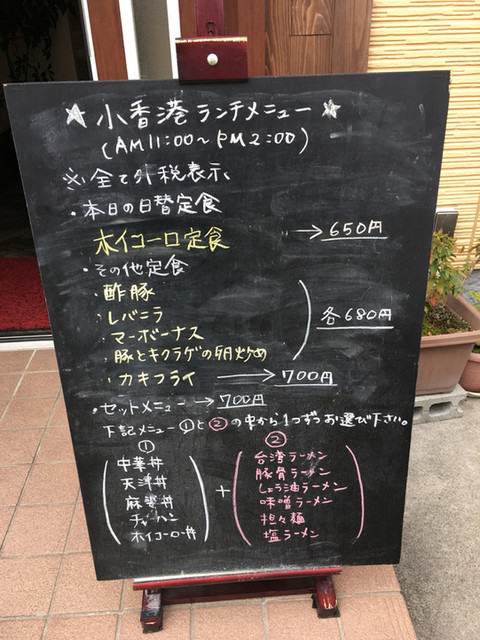 ★小香港ランチメニュー★
(AM11:00～PM2:00)
※全て外税表示
・本日の日替定食
ホイコーロ定食 → 650円
・その他定食
・酢豚
・レバニラ
・マーボーナス
・豚とキクラゲの卵炒め
) 各680円
・カキフライ → 700円
・セットメニュー → 700円
下記メニュー①と②の中から1つずつお選び下さい。
①
中華丼
天津丼
麻婆丼
チャーハン
ホイコーロー丼
+
②
台湾ラーメン
豚骨ラーメン
しょう油ラーメン
味噌ラーメン
担々麺
塩ラーメン